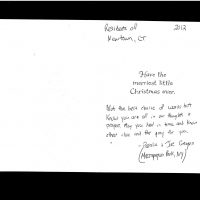 Residents of 2013
Newtown, CT
Have the
merriest little
Christmas ever.
Not the best choice of words but
know you are all in our thoughts &
prayers. May you heal in time and know
other love and they pray for you.
(Massapequa Park, NY)